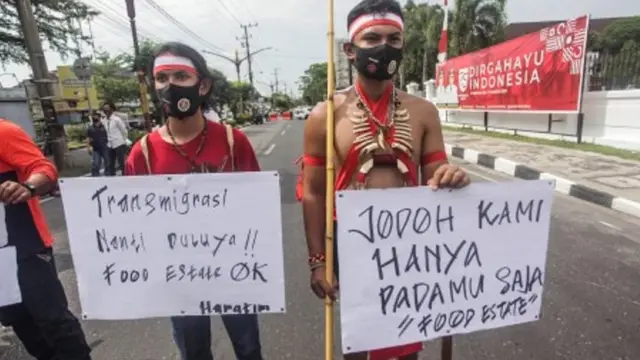 Transmigrasi
Nanti Duluya !!
FOOD ESTATE OK
Haratim
JODOH KAMI
HANYA
PADAMU SAJA
"FOOD ESTATE"
DIRGAHAYU
INDONESIA